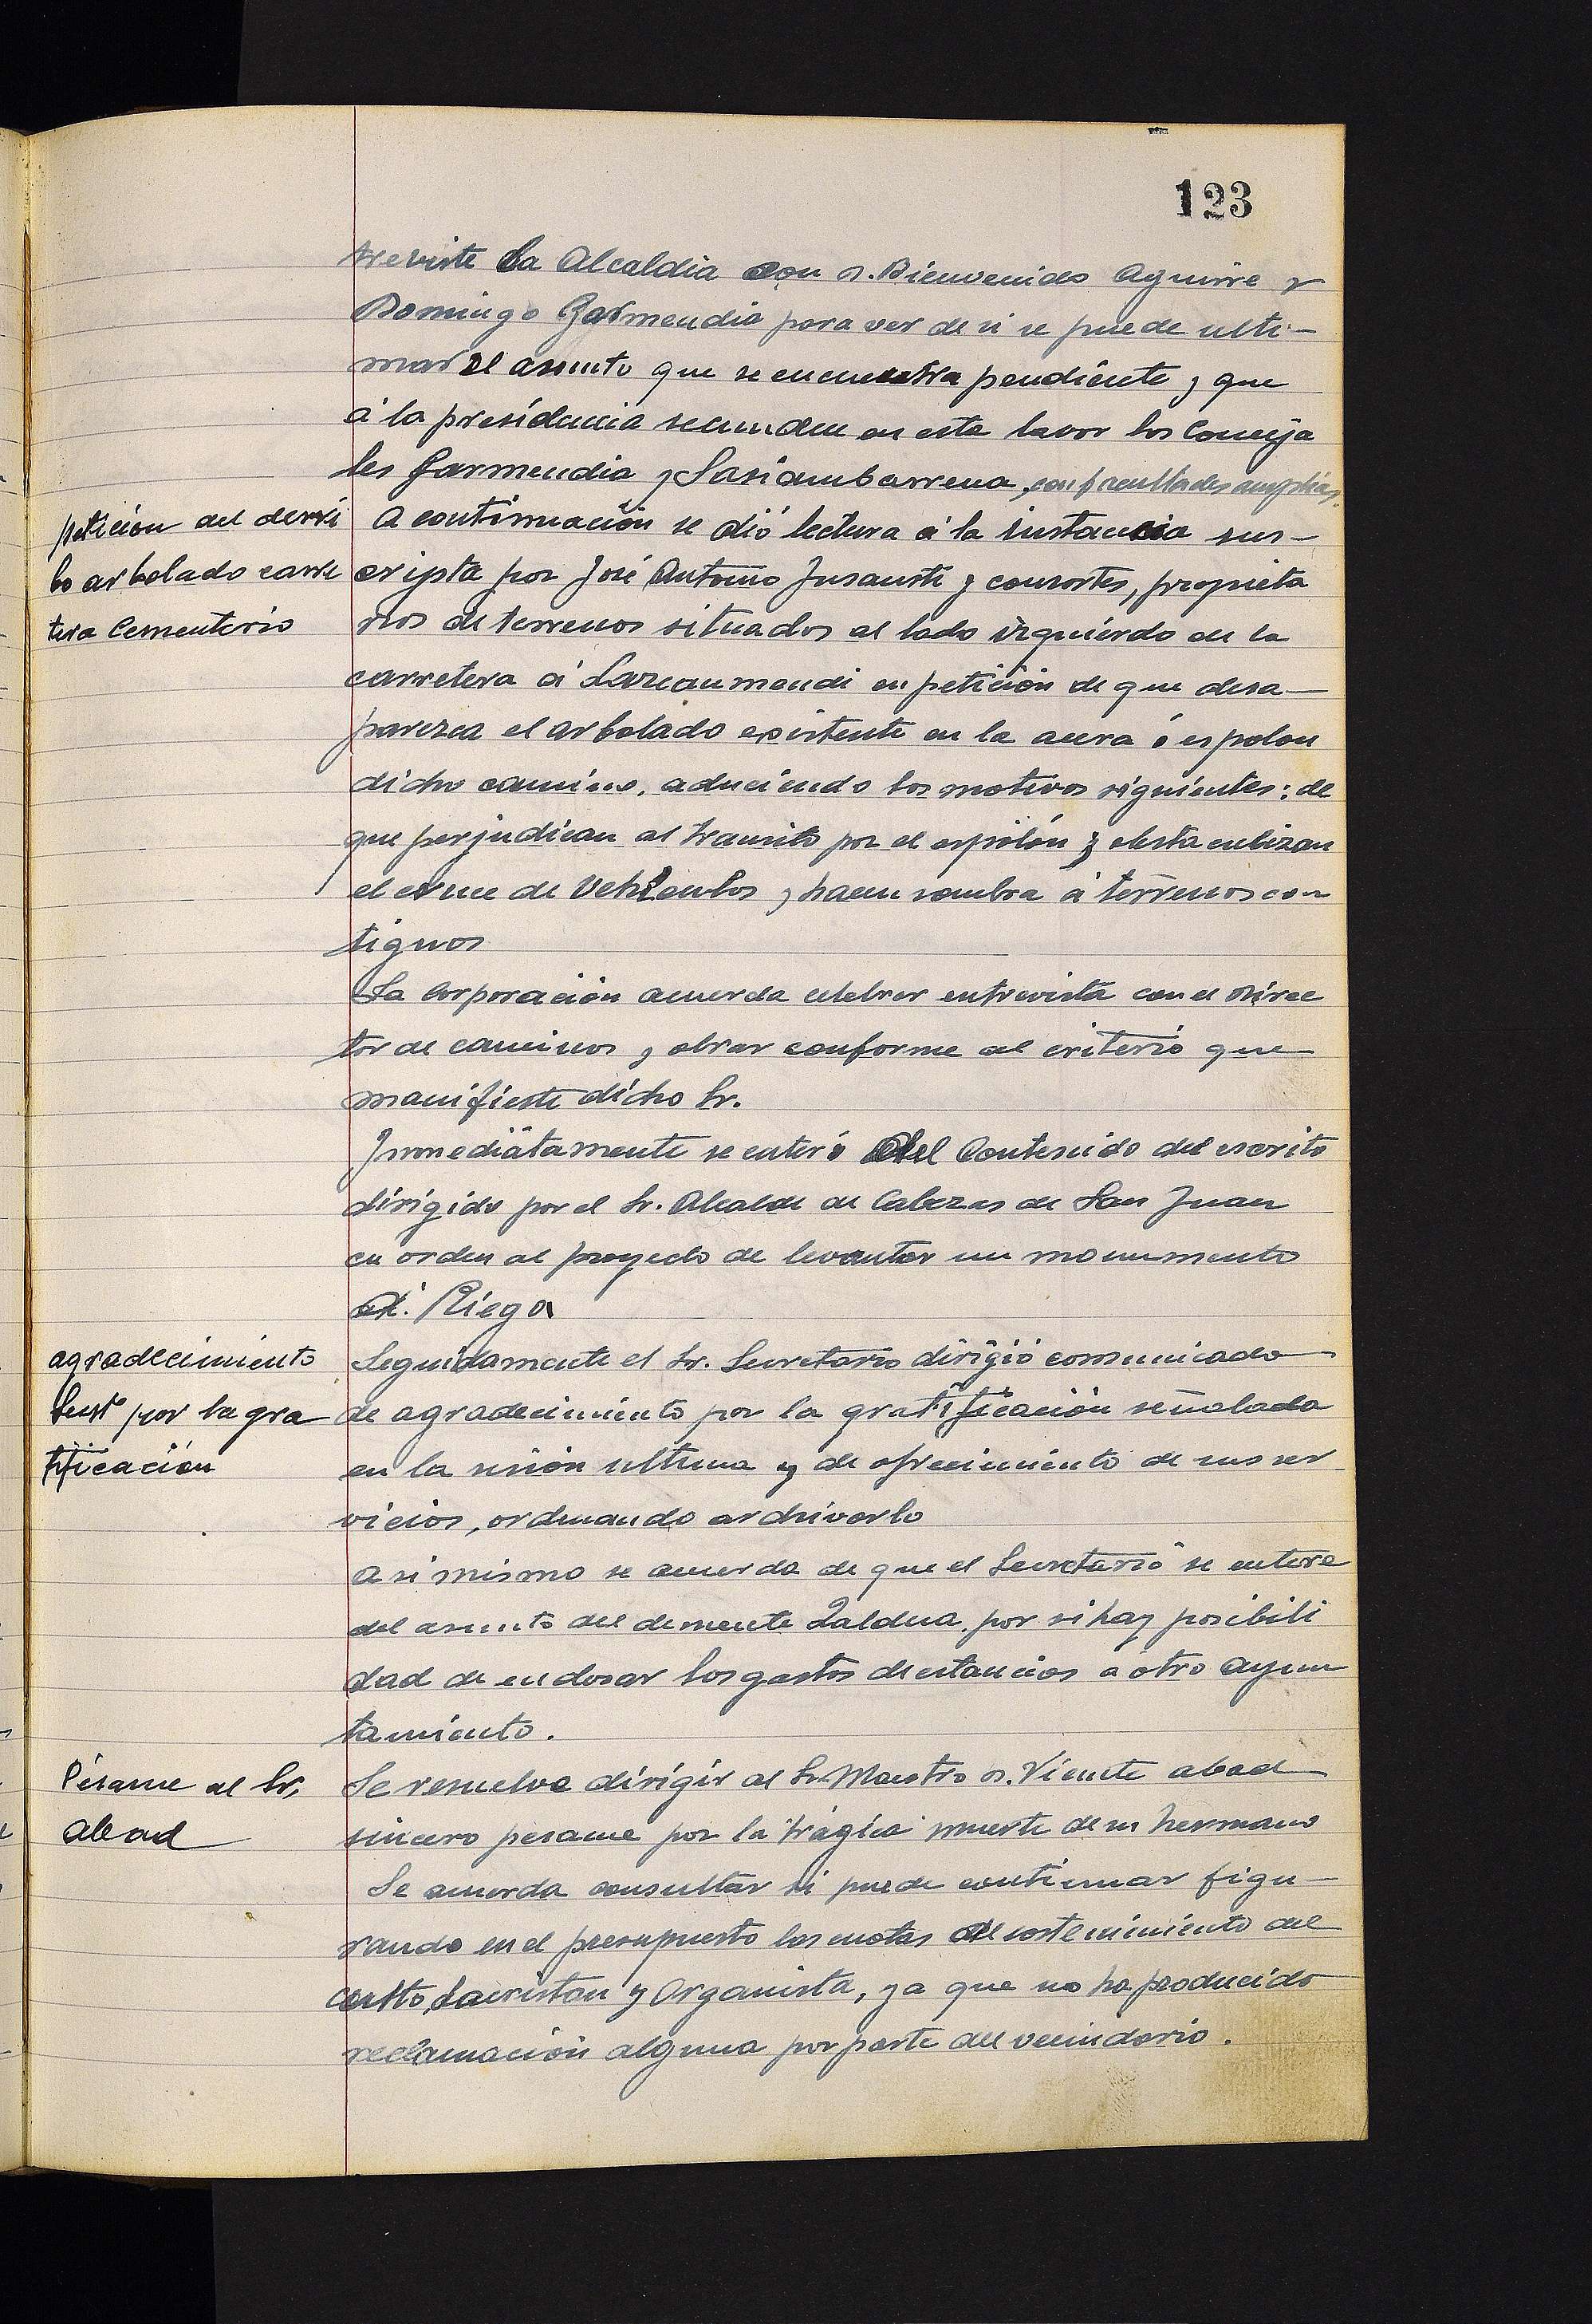 123
treviste la Alcaldia con D. Bienvenido Aguirre y
Domingo Garmendia para ver de si se puede ulti-
mar el asunto que se encuentra pendiente y que
á la presidencia secunden en esta lavor los Conceja
les Garmendia y Sasiambarrena, con facultades amplias.
petición del derri
bo arbolado carre
tera Cementerio
A continuación se dió lectura á la instancia sus-
cripta por José Antonio Insausti y consortes, propieta
rios de terrenos situados al lado izquierdo de la
carretera á Lazcaumendi en petición de que desa-
parezca el arbolado existente en la acera ó espolon
dicho camino, aduciendo los motivos siguientes: de
que perjudican al transito por el espolón y obstaculizan
el cruce de Vehiculos y hacen sombra á terrenos con
tiguos
La Corporación acuerda celebrar entrevista con el Direc
tor de caminos y obrar conforme al criterio que
manifieste dicho Sr.
Inmediatamente se enteró del Contenido del escrito
dirigido por el Sr. Alcalde de Cabezas de San Juan
en orden al proyecto de levantar un monumento
á Riego
agradecimiento
por la gra
tificación
Seguidamente el Sr. Secretario dirigió comunicado
de agradecimiento por la gratificación señalada
en la sesión ultima y de ofrecimiento de sus ser
vicios, ordenando archivarlo
Asi mismo se acuerda de que el Secretario se entere
del asunto del demente Zaldua por si hay posibili
dad de endosar los gastos de estancias a otro ayun
tamiento.
Pésame al Sr.
Abad
Se resuelve dirigir al Sr. Maestro D. Vicente Abad
sincero pesame por la trágica muerte de su hermano
Se acuerda consultar si puede continuar figu-
rando en el presupuesto las cuotas del sostenimiento del
culto, Sacristan y Organista, ya que no ha producido
reclamación alguna por parte del vecindario.